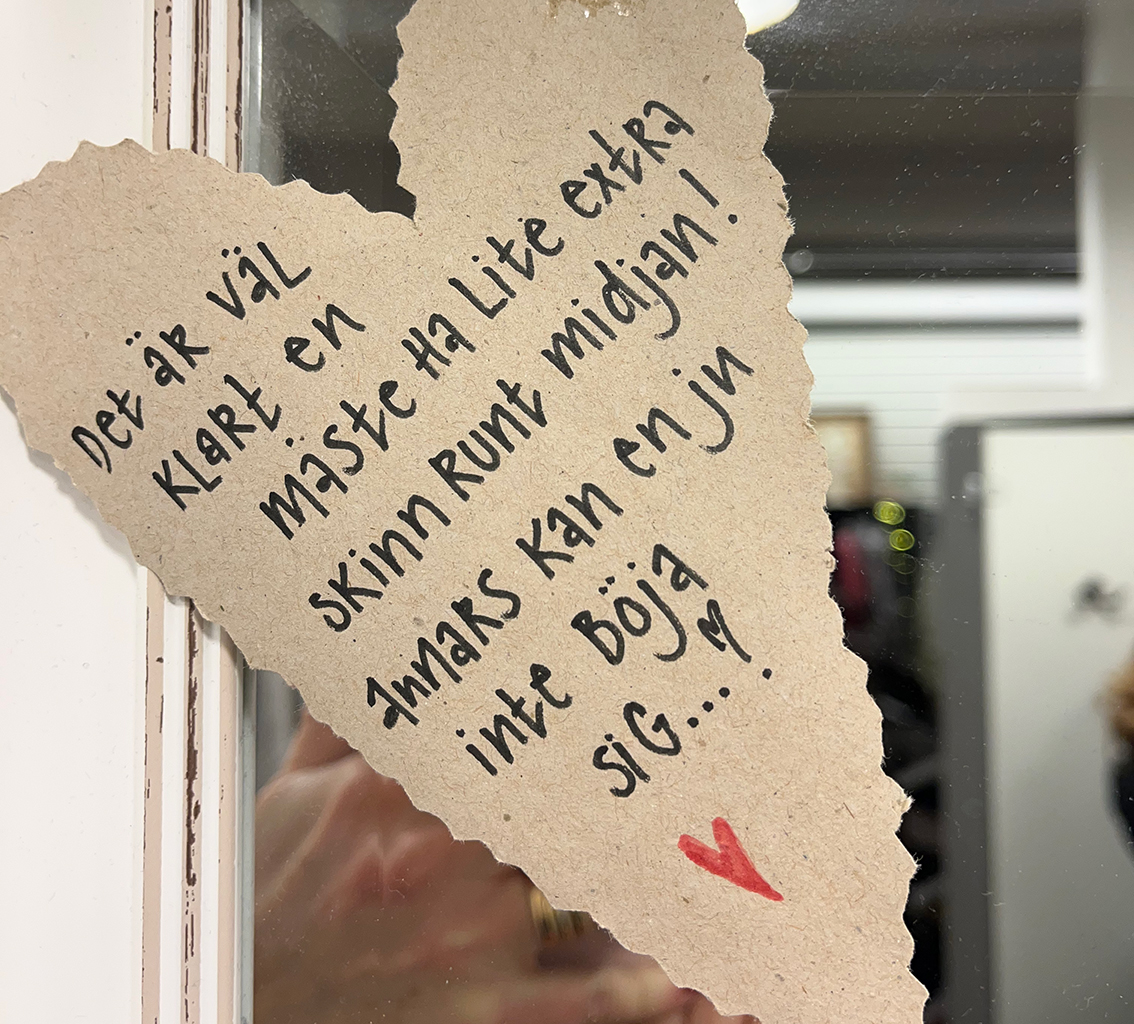 Det är väl
klart en
måste ha lite extra
skinn runt midjan!
Annars kan en ju
inte böja
sig...